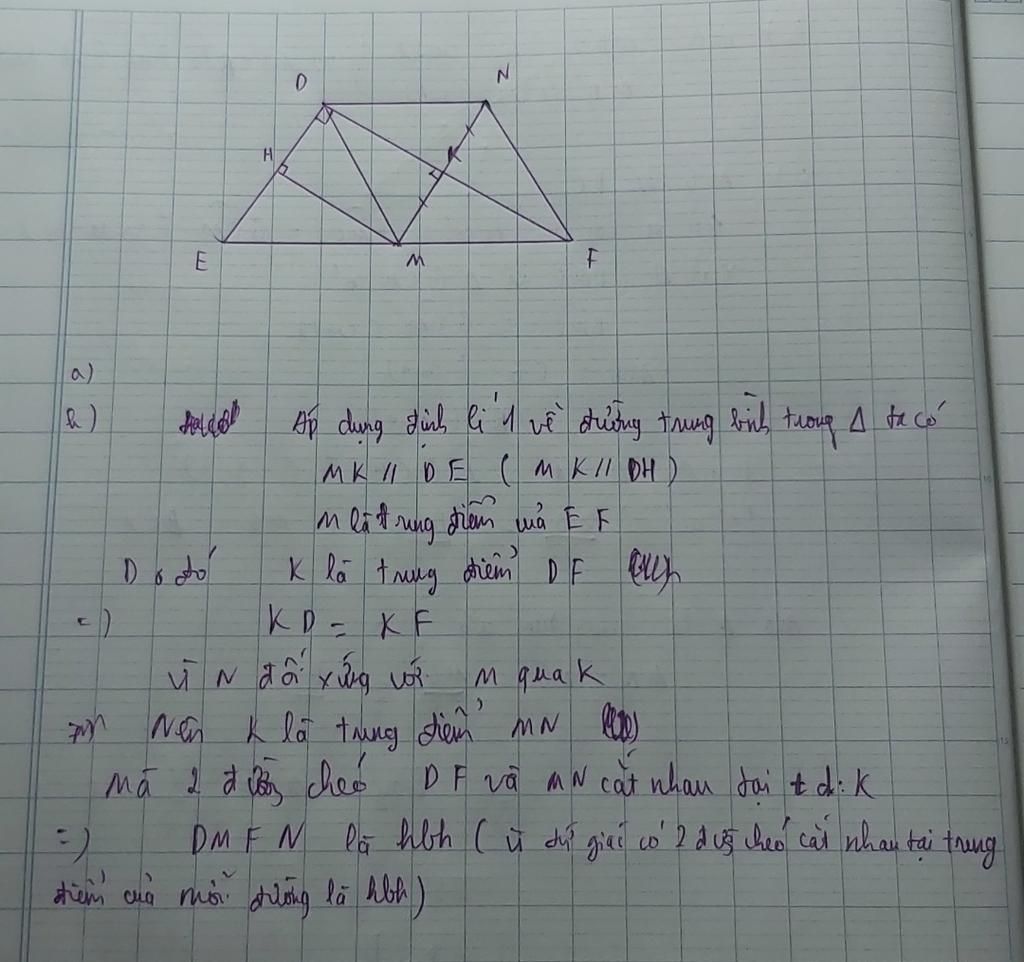 D N
H K
E M F
a)
b) Áp dụng định lí 1 về đường trung bình trong Δ ta có
MK // DE ( MK // DH )
M là trung điểm của EF
Do đó K là trung điểm DF
=) KD = KF
Vì N đối xứng với M qua K
Nên K là trung điểm MN
Mà 2 đường chéo DF và MN cắt nhau tại t đ: K
=) DMFN là hbh ( vì tứ giác có 2 đường chéo cắt nhau tại trung
điểm của mỗi đường là hbh )